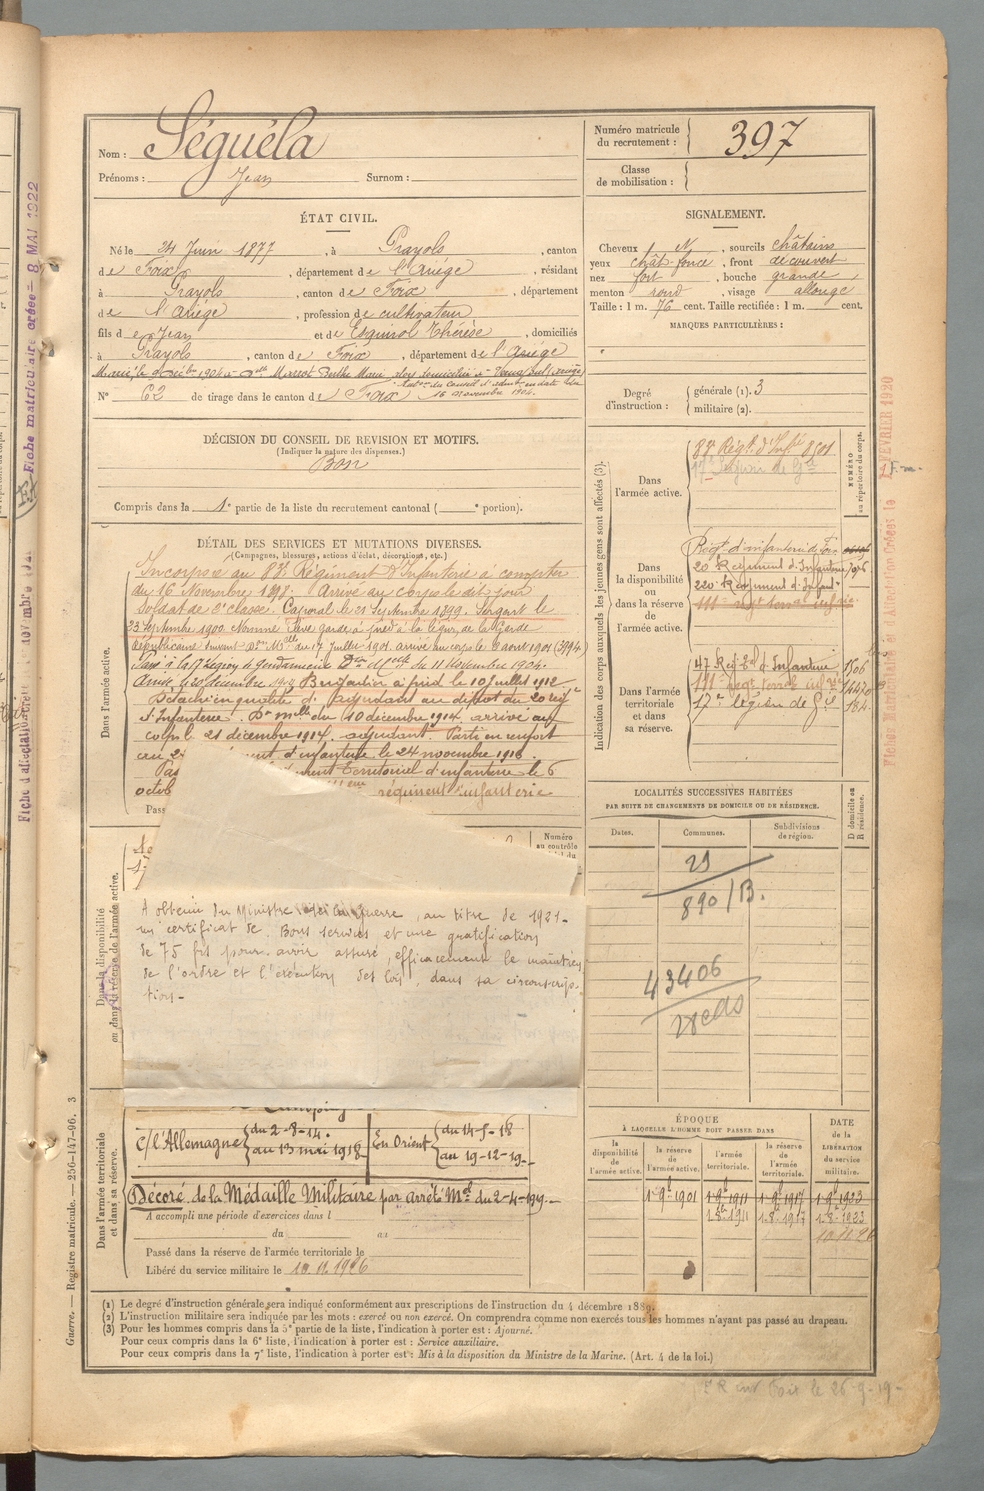 Nom : Séguéla
Prénoms : Jean Surnom :
Numéro matricule du recrutement : 397
Classe de mobilisation :
ÉTAT CIVIL.
Né le 24 Juin 1877, à Prayols, canton
de Foix, département de l'Ariège, résidant
à Prayols, canton de Foix, département
de l'Ariège, profession de cultivateur
fils de Jean et de Esquirol Thérèse, domiciliés
à Prayols, canton de Foix, département de l'Ariège
N° 62 de tirage dans le canton de Foix
16 novembre 1904.
SIGNALEMENT.
Cheveux N, sourcils châtains
yeux chât foncé, front découvert
nez fort, bouche grande
menton rond, visage allongé
Taille : 1 m. 76 cent. Taille rectifiée : 1 m. cent.
MARQUES PARTICULIÈRES :
Degré d'instruction : générale (1). 3
militaire (2).
DÉCISION DU CONSEIL DE REVISION ET MOTIFS.
(Indiquer la nature des dispenses.)
Bon
Compris dans la 1e partie de la liste du recrutement cantonal ( e portion).
DÉTAIL DES SERVICES ET MUTATIONS DIVERSES.
(Campagnes, blessures, actions d'éclat, décorations, etc.)
Dans l'armée active.
Incorporé au 83e Régiment d'Infanterie à compter
du 16 Novembre 1898. Arrivé au corps le dit jour
Soldat de 2e classe. Caporal le 21 Septembre 1899. Sergent le
23 Septembre 1900. Nommé Élève garde à pied à la légion de la Garde
Républicaine suivant Don Mlle du 17 Juillet 1901 arrivé au corps le 6 août 1901
Passé à la 17e Légion de Gendarmerie Don Mlle du 11 Novembre 1904.
Arrivé le 20 décembre 1904 Brigadier à pied le 10 Juillet 1912
Détaché en qualité d'adjudant au dépôt du 20 régt
d'Infanterie. Don mlle du 10 décembre 1914, arrivé au
corps le 21 décembre 1914. adjudant. Parti en renfort
au 2 d'infanterie le 24 novembre 1916.
Pas Territoriel d'infanterie le 6
octob régiment d'infanterie
Pass
Numéro au contrôle
Dans la disponibilité ou dans la réserve de l'armée active.
A obtenu du Ministre de la guerre, au titre de 1921
un certificat de Bons services et une gratification
de 75 frs pour avoir assuré, efficacement le maintien
de l'ordre et l'exécution des lois, dans sa circonscrip-
tion-
Dans l'armée territoriale et dans sa réserve.
c/ l'Allemagne du 2-8-14. au 13 mai 1918 En Orient du 14-5-18 au 19-12-19-
Décoré de la Médaille Militaire par arrêté Mel du 2-4-1919-
A accompli une période d'exercices dans l
du au
Passé dans la réserve de l'armée territoriale le
Libéré du service militaire le 10.11.1926
Indication des corps auxquels les jeunes gens sont affectés (3).
NUMÉRO au répertoire du corps.
Dans l'armée active.
83e Régt. d'Infie 8501
17e Légion de Gie
Dans la disponibilité ou dans la réserve de l'armée active.
Régt d'infanterie de Foix
20e Régiment d'Infanterie
220e Régiment d'Infant
Dans l'armée territoriale et dans sa réserve.
17e légion de Gie 184
LOCALITÉS SUCCESSIVES HABITÉES
PAR SUITE DE CHANGEMENTS DE DOMICILE OU DE RÉSIDENCE.
Dates. Communes. Subdivisions de région. D domicile ou R résidence.
29
890/B.
43406
ÉPOQUE
À LAQUELLE L'HOMME DOIT PASSER DANS
la disponibilité de l'armée active. la réserve de l'armée active. l'armée territoriale. la réserve de l'armée territoriale.
DATE de la LIBÉRATION du service militaire.
1-9-1901 1-9-1911 1-9-1917 1-9-1923
1-8-1911 1-8-1917 1-8-1923
(1) Le degré d'instruction générale sera indiqué conformément aux prescriptions de l'instruction du 4 décembre 1889.
(2) L'instruction militaire sera indiquée par les mots : exercé ou non exercé. On comprendra comme non exercés tous les hommes n'ayant pas passé au drapeau.
(3) Pour les hommes compris dans la 5e partie de la liste, l'indication à porter est : Ajourné.
Pour ceux compris dans la 6e liste, l'indication à porter est : Service auxiliaire.
Pour ceux compris dans la 7e liste, l'indication à porter est : Mis à la disposition du Ministre de la Marine. (Art. 4 de la loi.)
Guerre. — Registre matricule. — 256-147-96. 3
Fiche matriculaire créée - 8 MAI 1922
Foix le 26-9-19-